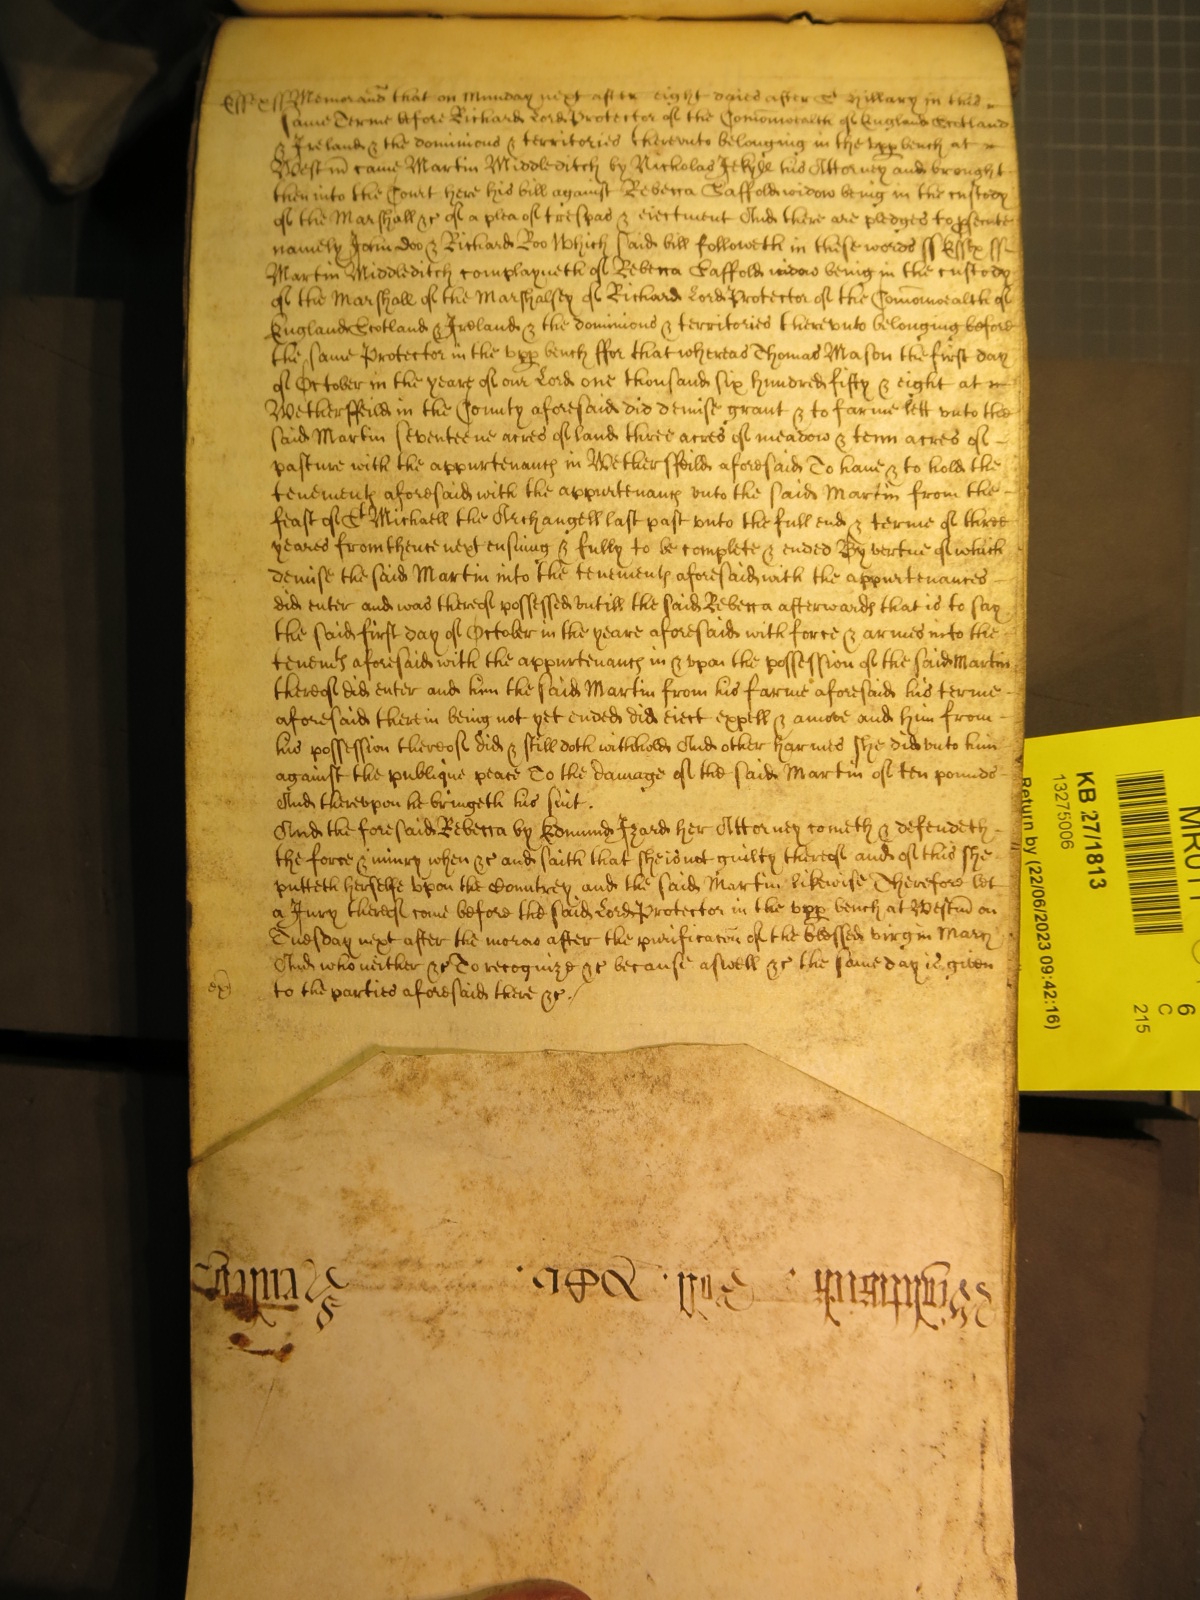 Essex ss Memorand that on Munday next after eight daies after St Hillary in this
same Terme before Richard Lord Protector of the Comonwealth of England Scotland
& Ireland & the dominions & territories therevnto belonging in the vpp bench at
Westm came Martin Middleditch by Nicholas Jekyll his Attorney and brought
then into the Court here his bill against Rebecca Saffold widow being in the custody
of the Marshall &c of a plea of trespas & eiectment And there are pledges to psecute
namely John Doo & Richard Roo Which said bill followeth in these words ss Essex ss
Martin Middleditch complayneth of Rebecca Saffold widow being in the custody
of the Marshall of the Marshalsey of Richard Lord Protector of the Comonwealth of
England Scotland & Ireland & the dominions & territories therevnto belonging before
the same Protector in the vpp bench ffor that whereas Thomas Mason the first day
of October in the yeare of our Lord one thousand six hundred fifty & eight at
Wethersffeild in the County aforesaid did demise grant & to farme lett vnto the
said Martin seventeene acres of land three acres of meadow & tenn acres of
pasture with the appurtenancs in Wethersffeild aforesaid To haue & to hold the
tenements aforesaid with the appurtenancs vnto the said Martin from the
feast of St Michaell the Archangell last past vnto the full end & terme of three
yeares from thence next ensuing & fully to be complete & ended By vertue of which
demise the said Martin into the tenements aforesaid with the appurtenances
did enter and was thereof possessed vntill the said Rebecca afterwards that is to say
the said first day of October in the yeare aforesaid with force & armes into the
tenemts aforesaid with the appurtenancs in & vpon the possession of the said Martin
thereof did enter and him the said Martin from his farme aforesaid his terme
aforesaid therein being not yet ended did eiect expell & amove and him from
his possession thereof did & still doth withhold And other harmes she did vnto him
against the publique peace To the damage of the said Martin of ten pounds
And therevpon he bringeth his suit.
And the foresaid Rebecca by Edmund Izard her Attorney cometh & defendeth
the force & iniury when &c and saith that she is not guilty thereof and of this she
putteth herselfe vpon the Countrey and the said Martin likewise Therefore let
a Jury thereof come before the said Lord Protector in the vpp bench at Westm on
Tuesday next after the morao after the purificacon of the blessed virgin Mary
And who neither &c To recognize &c because aswell &c the same day is given
to the parties aforesaid there &c./
ex
Wightwick. Hill.
KB 27/1813
13275006
Return by (22/06/2023 09:42:16)
6
C
215